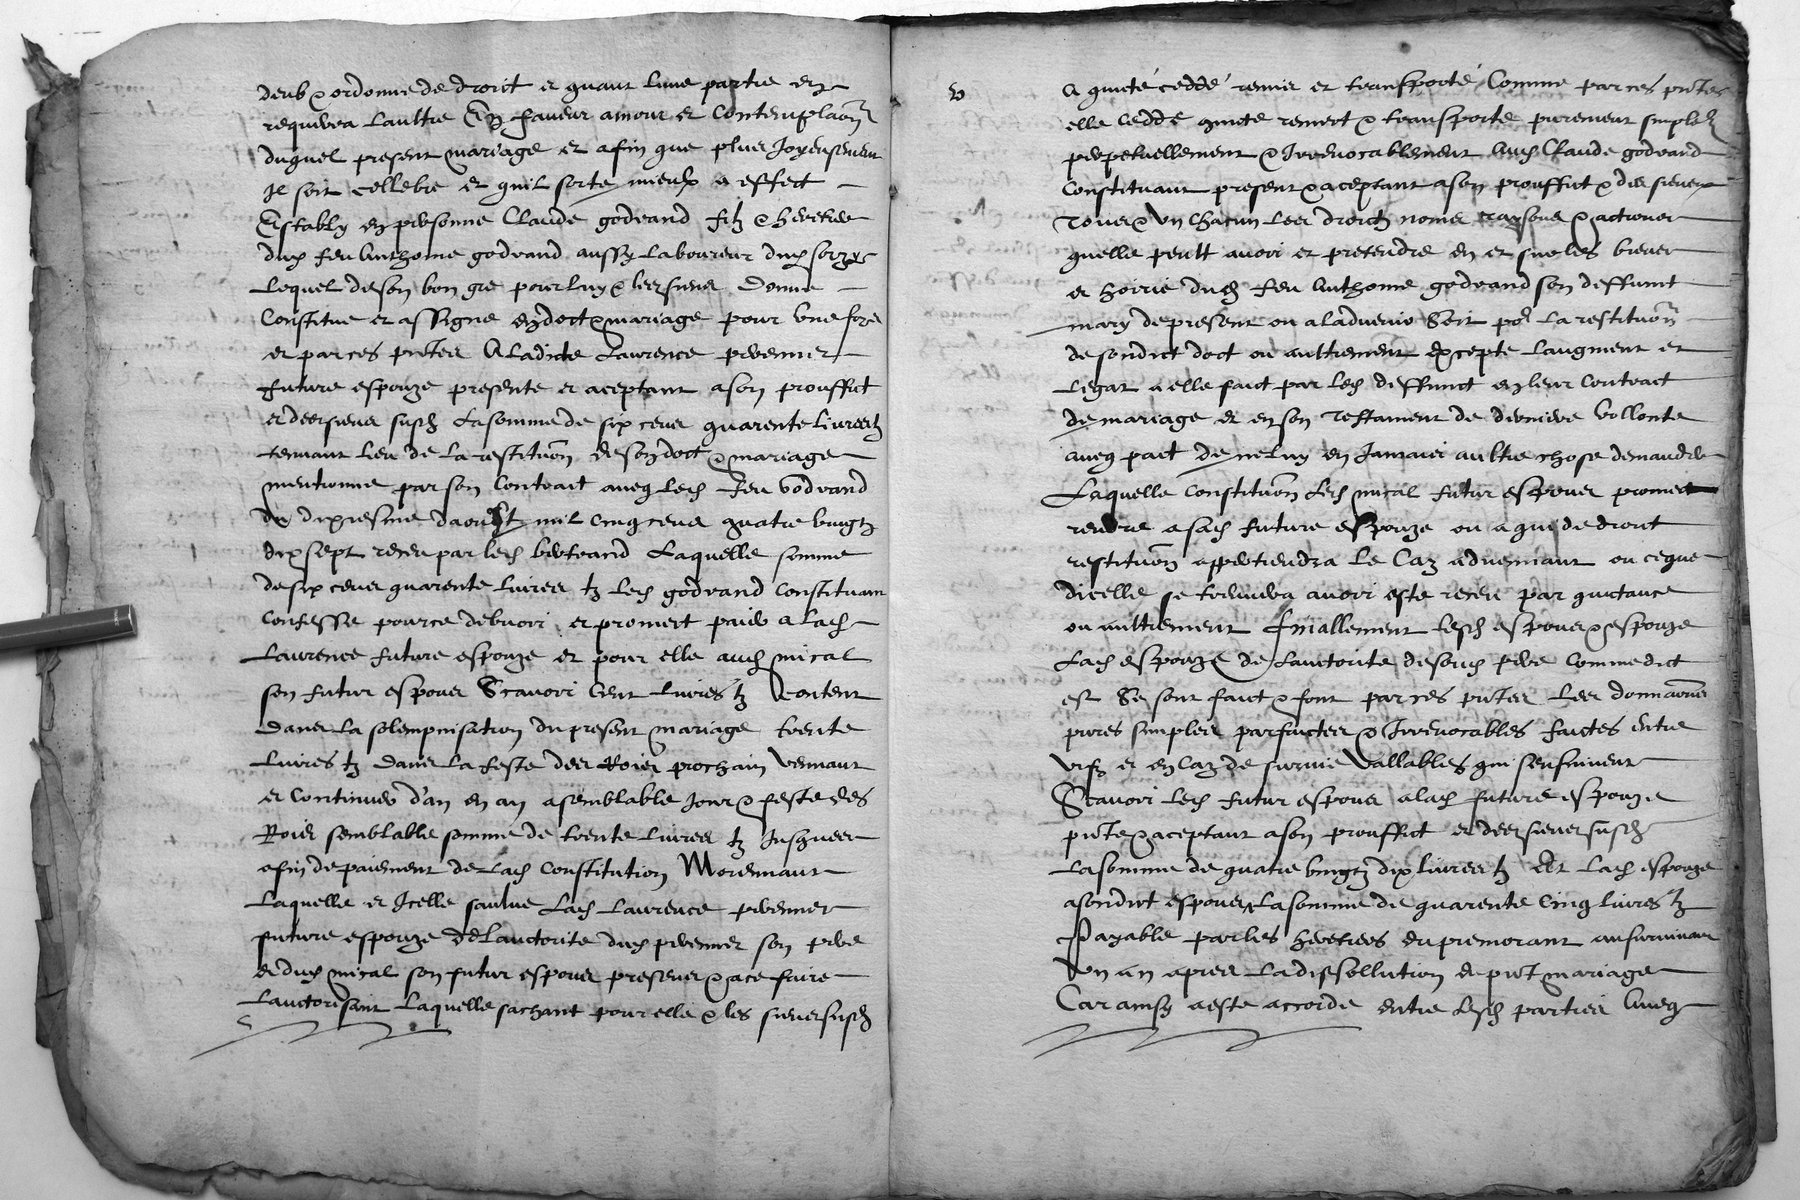 deub & ordonne de droict et quant lune partie en
requerra laultre En faveur amour et Contemplaon
duquel present mariage et afin que plus Joyeusement
Il soit cellebre et quil sorte mieulx a effect
Establÿ en personne Claude godrand filz & heretier
dud feu Anthoine godrand aussy Laboureur dud
Lequel de son bon gre pour luy & les siens Donne
Constitue et assigne en doct & mariage pour une foys
et par ces pntes A ladicte Laurence
future espouze presente et aceptant a son prouffict
et des siens susd La somme de six cens quarente Livres tz
tennant lieu de la restituon de son doct & mariage
mentionne par son Contraict aveq led feu godrand
du dixiesme daoust mil cinq cens quatre vingtz
dix sept receu par led bertrand Laquelle somme
de six cens quarente livres tz led godrand Constituant
Confesse pour ce debvoir et promect paier a lad
Laurence future espouze et pour elle aud mical
son futur espoux Scavoir Cent livres tz Content
dans la solempnisation du present mariage trente
livres tz dans la feste des Roies prochain vennant
et continuer d'an en an a semblable jour & feste des
Roies semblable somme de trente livres tz Jusques
a fin de paiement de lad Constitution Moiennant
Laquelle et Icelle saulve lad Laurence
future espouze de lauctorite dud son pere
et dud mical son futur espoux presens & a ce faire
Lauctorisant Laquelle sachant pour elle & les siens susd
v
A quicté ceddé remis et transporté Comme par ces pntes
elle cedde quicte remect & transporte purement simplet
perpetuellement & Irrevocablement Aud Claude godrand
Constituant present & aceptant a son prouffict & des siens
Tous & Un chacun les droictz noms raysons & actions
quelle peult avoir et pretendre en et sur les biens
et hoirie dud feu Anthoine godrand son deffunct
mary de present ou a ladvenir Soit por la restituon
de sondict doct ou aultrement Excepte Laugment et
Legat a elle faict par led deffunct en leur Contract
de mariage et en son Testament de derniere vollonte
aveq pact de ne luy en Jamais aultre chose demander
Laquelle constituon led mical futur espoux promect
rendre a sad future espouze ou a qui de droict
restituon appertiendra le Caz advennant ou ce que
dicelle se treuvera avoir este receu par quictance
ou aultrement finallement lesd espoux & espouze
Lad espouze de lauctorite de sond pere comme dict
est Se sont faict & font par ces pntes les donnaons
pures simples parfaictes & Irrevocables faictes entre
vifz et en caz de survie vallables qui sensuivent
Scavoir led futur espoux a lad future espouze
pnte & aceptant a son prouffict et des siens susd
La somme de quatre vingtz dix livres tz Et lad espouze
a sondict espoux La somme de quarente cinq livres tz
Payable par les heretiers du premorant au survivant
Un an apres La dissollution du pnt mariage
Car ainsy a este accorde entre lesd parties Aveq